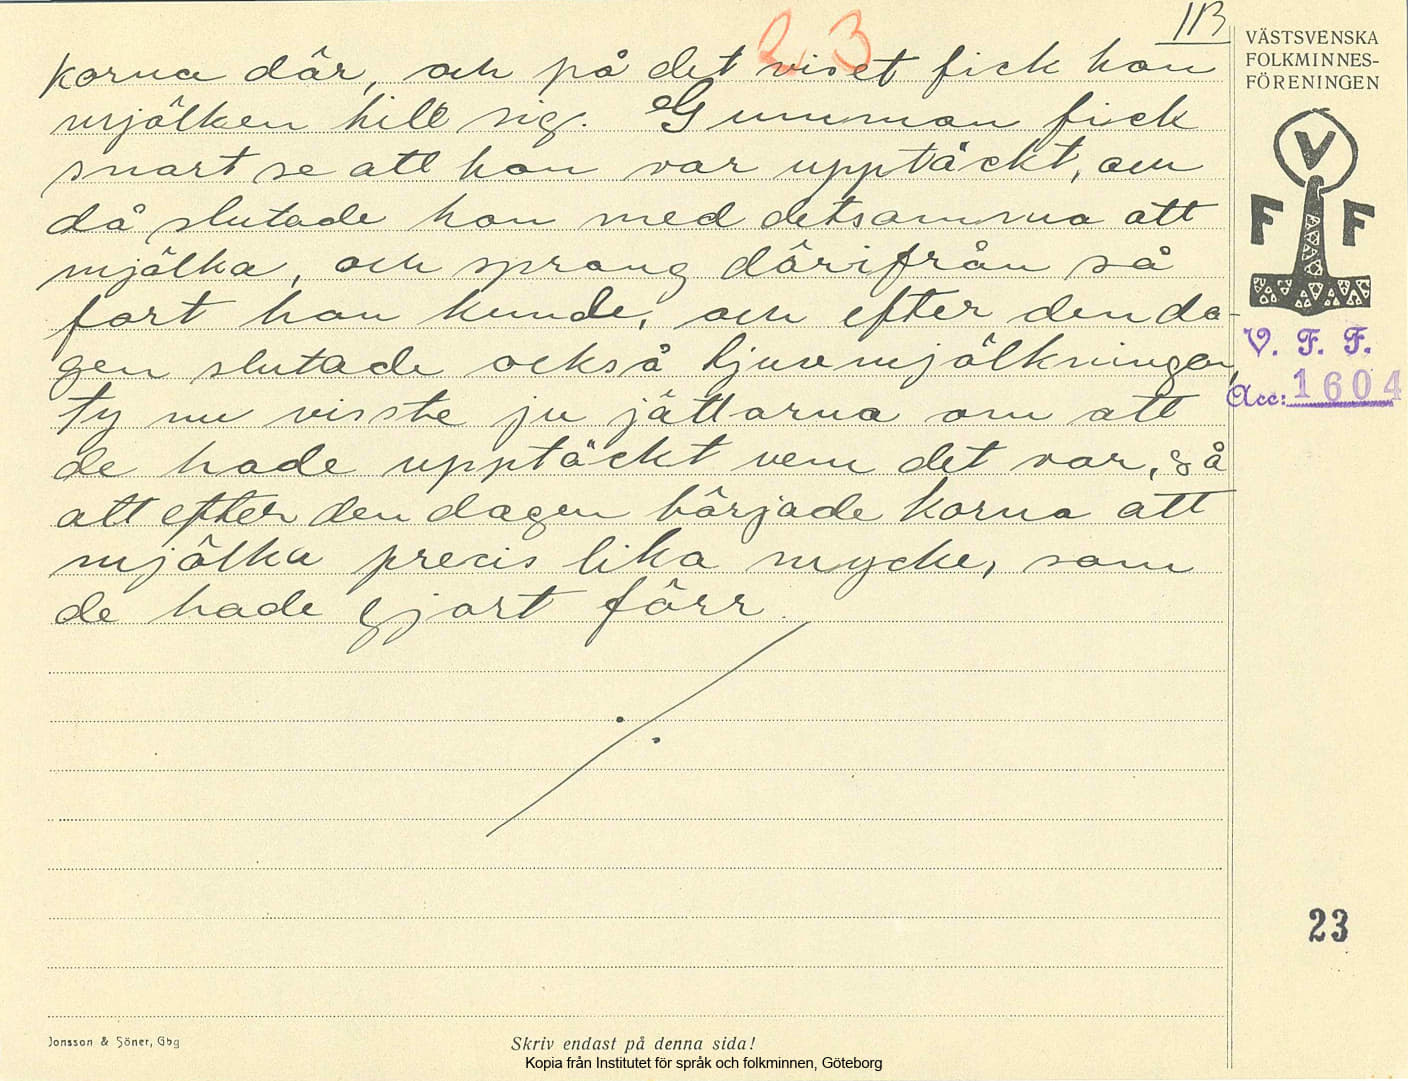 23
11B
korna där, och på det viset fick hon
mjölken till sig. Gumman fick
snart se att hon var upptäckt, och
då slutade hon med detsamma att
mjölka, och sprang därifrån så
fort hon kunde, och efter den da-
gen slutade också tjuvmjölkningen,
ty nu visste ju jättarna om att
de hade upptäckt vem det var, så
att efter den dagen började korna att
mjölka precis lika mycke, som
de hade gjort förr.
VÄSTSVENSKA
FOLKMINNES-
FÖRENINGEN
V
F F
V. F. F.
Acc: 1604
23
Jonsson & Söner, Gbg
Skriv endast på denna sida!
Kopia från Institutet för språk och folkminnen, Göteborg